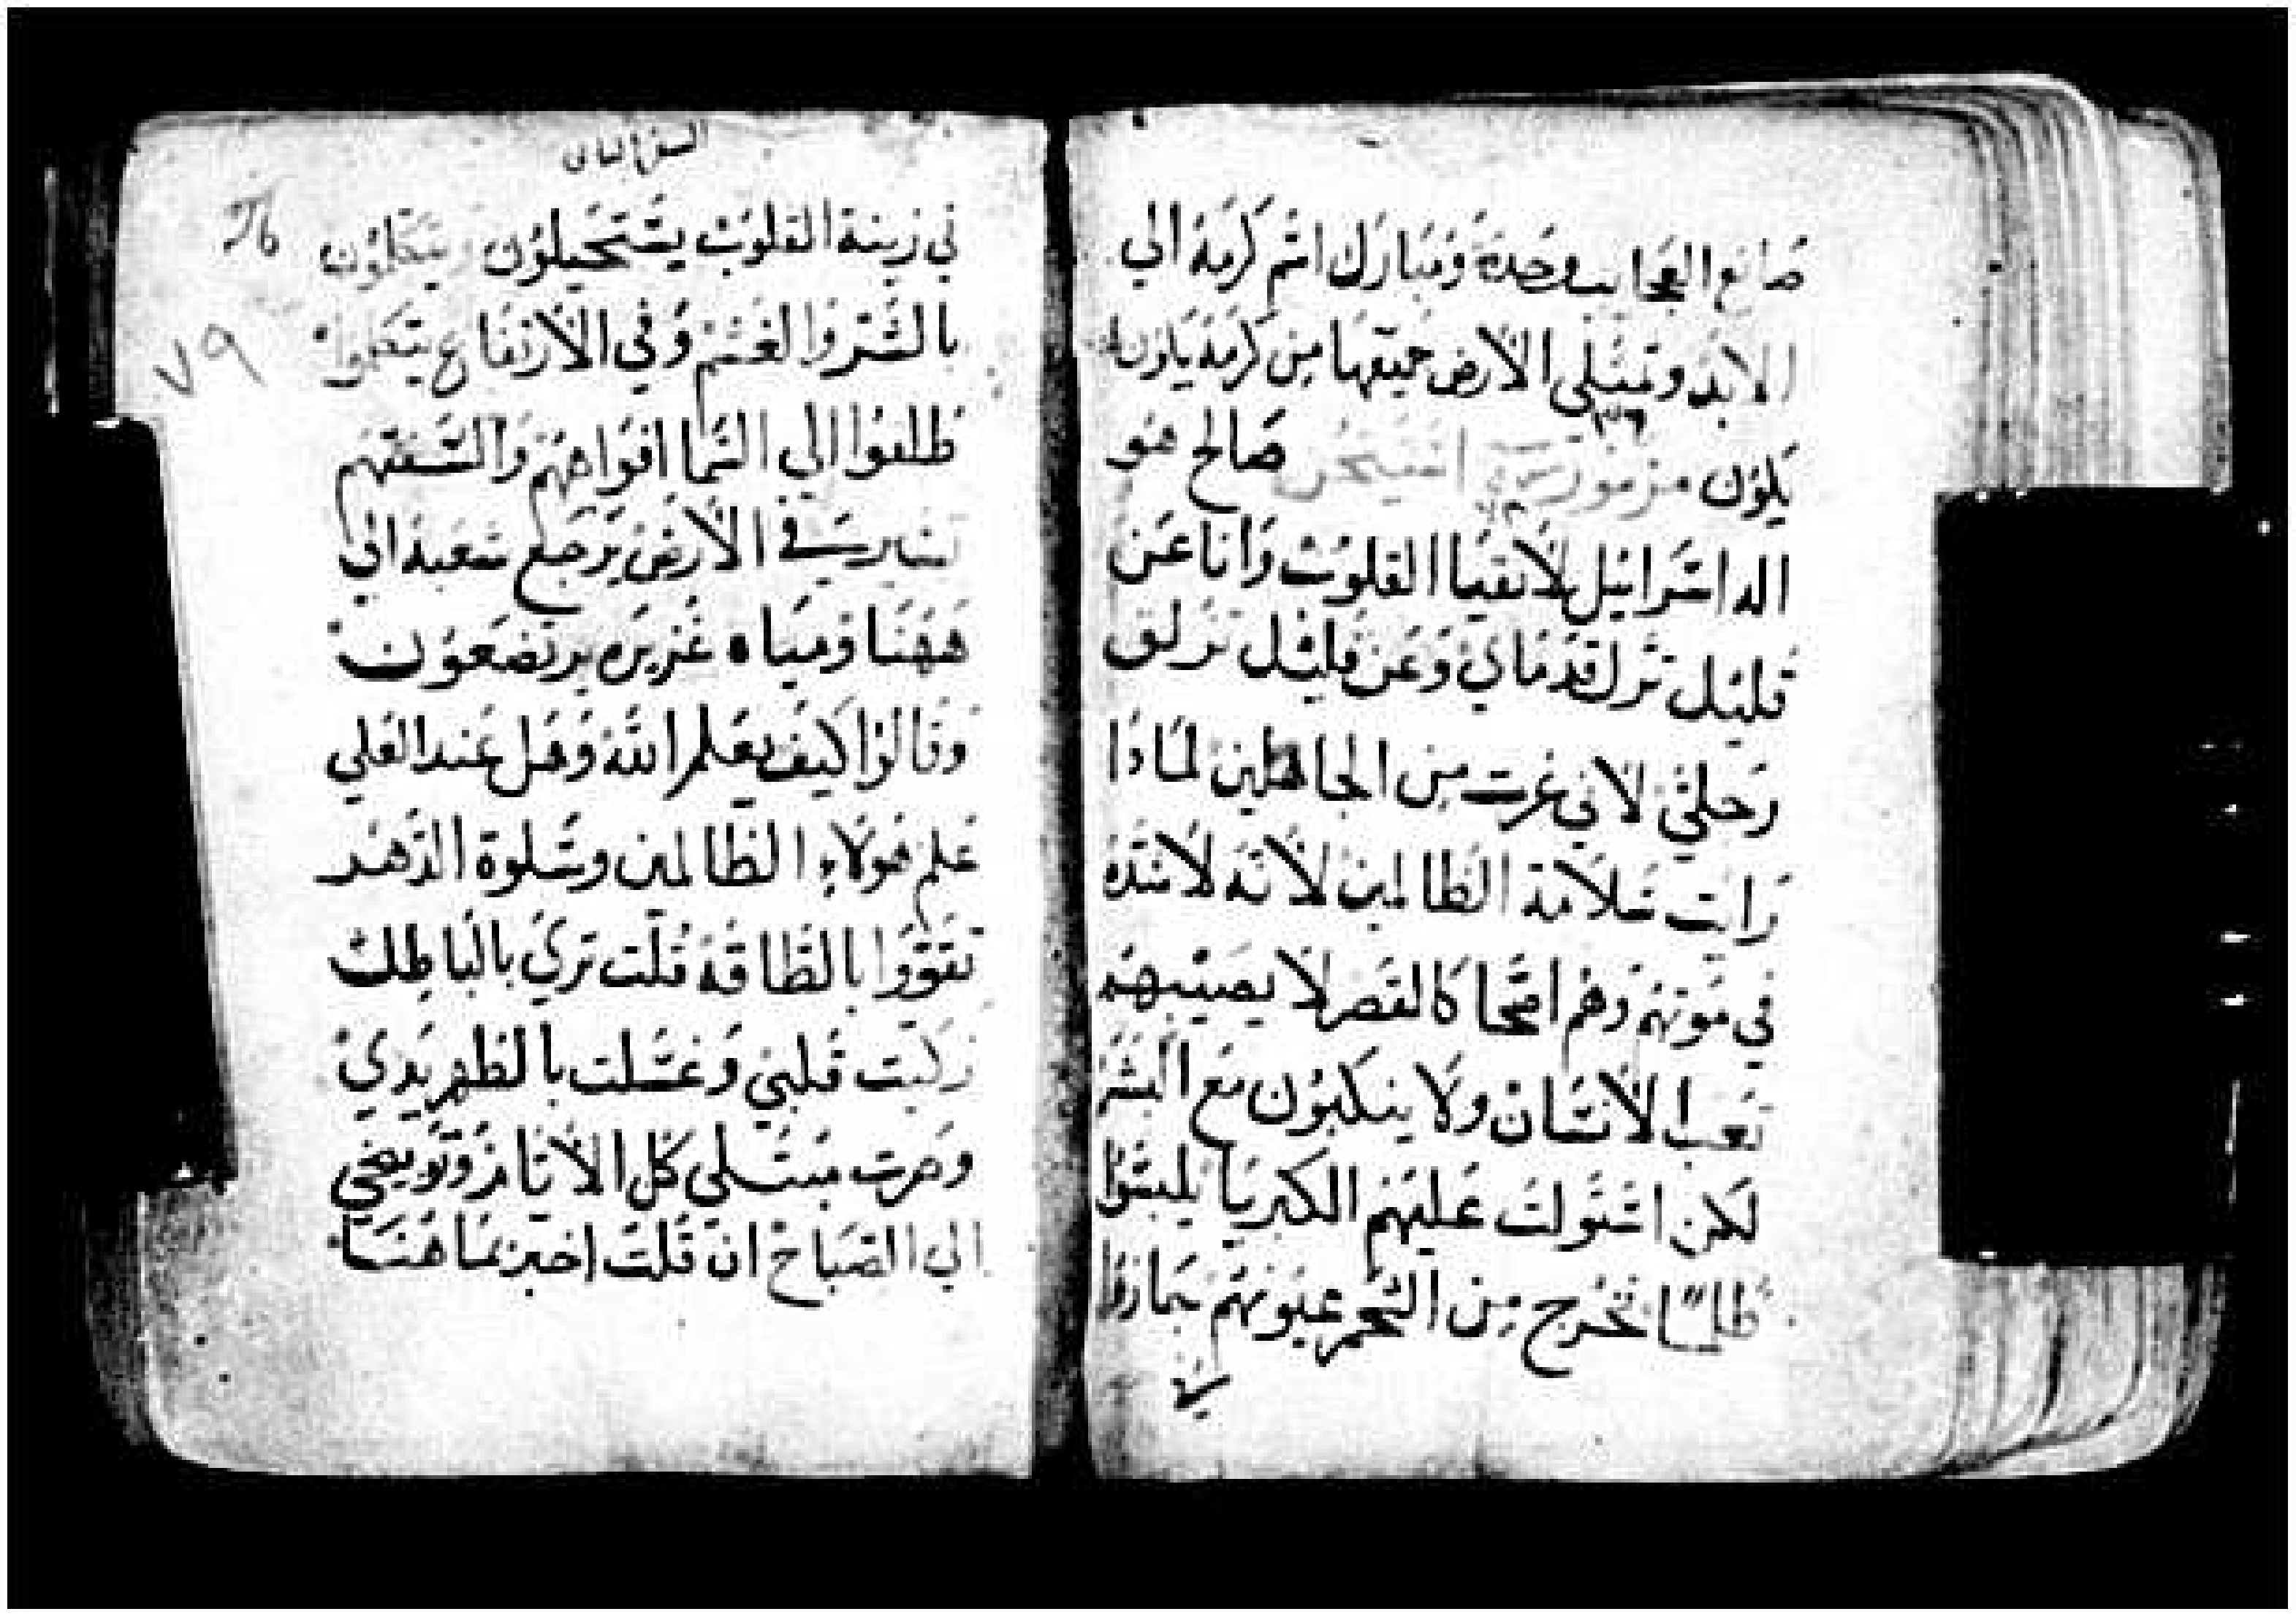 صانع العجايب وحده ومبارك اسم كرمه الي
الابد وتمتلي الارض جميعها من كرمه يكون
يكون مزمور صالح هو
اله اسرايل لانقيا القلوب وانا عن
قليل تزل قدماي وعن قليل تزلق
رحلتي لاني غرت من الجاهلين لماذا
رايت سلامة الظالمين لانه لا شده
في موتهم وهم اصحا كالقصر لا يصيبهم
تعب الانسان ولا ينكبون مع البشر
لكن استولت عليهم الكبريا لبسوا
ظلما تخرج من الشحم عيونهم جازوا
في
في زينة القلوب يستحيلون يتكلون
بالشر والغشم وفي الارتفاع يتكلموا
طلعوا الي السما افواههم والسنتهم
تسير في الارض يرجع شعبه الي
ههنا ومياه غزيره يرتضعون
وقالوا كيف يعلم الله وهل عند العلي
علم هولاء الظالمين وسلوة الدهر
تقووا بالطاقه قلت تري بالباطل
زكيت قلبي وغسلت بالطهر يدي
وصرت مبتلي كل الاناز وتوبيخي
الي الصباح ان قلت اخبز بما هنا
٧٩